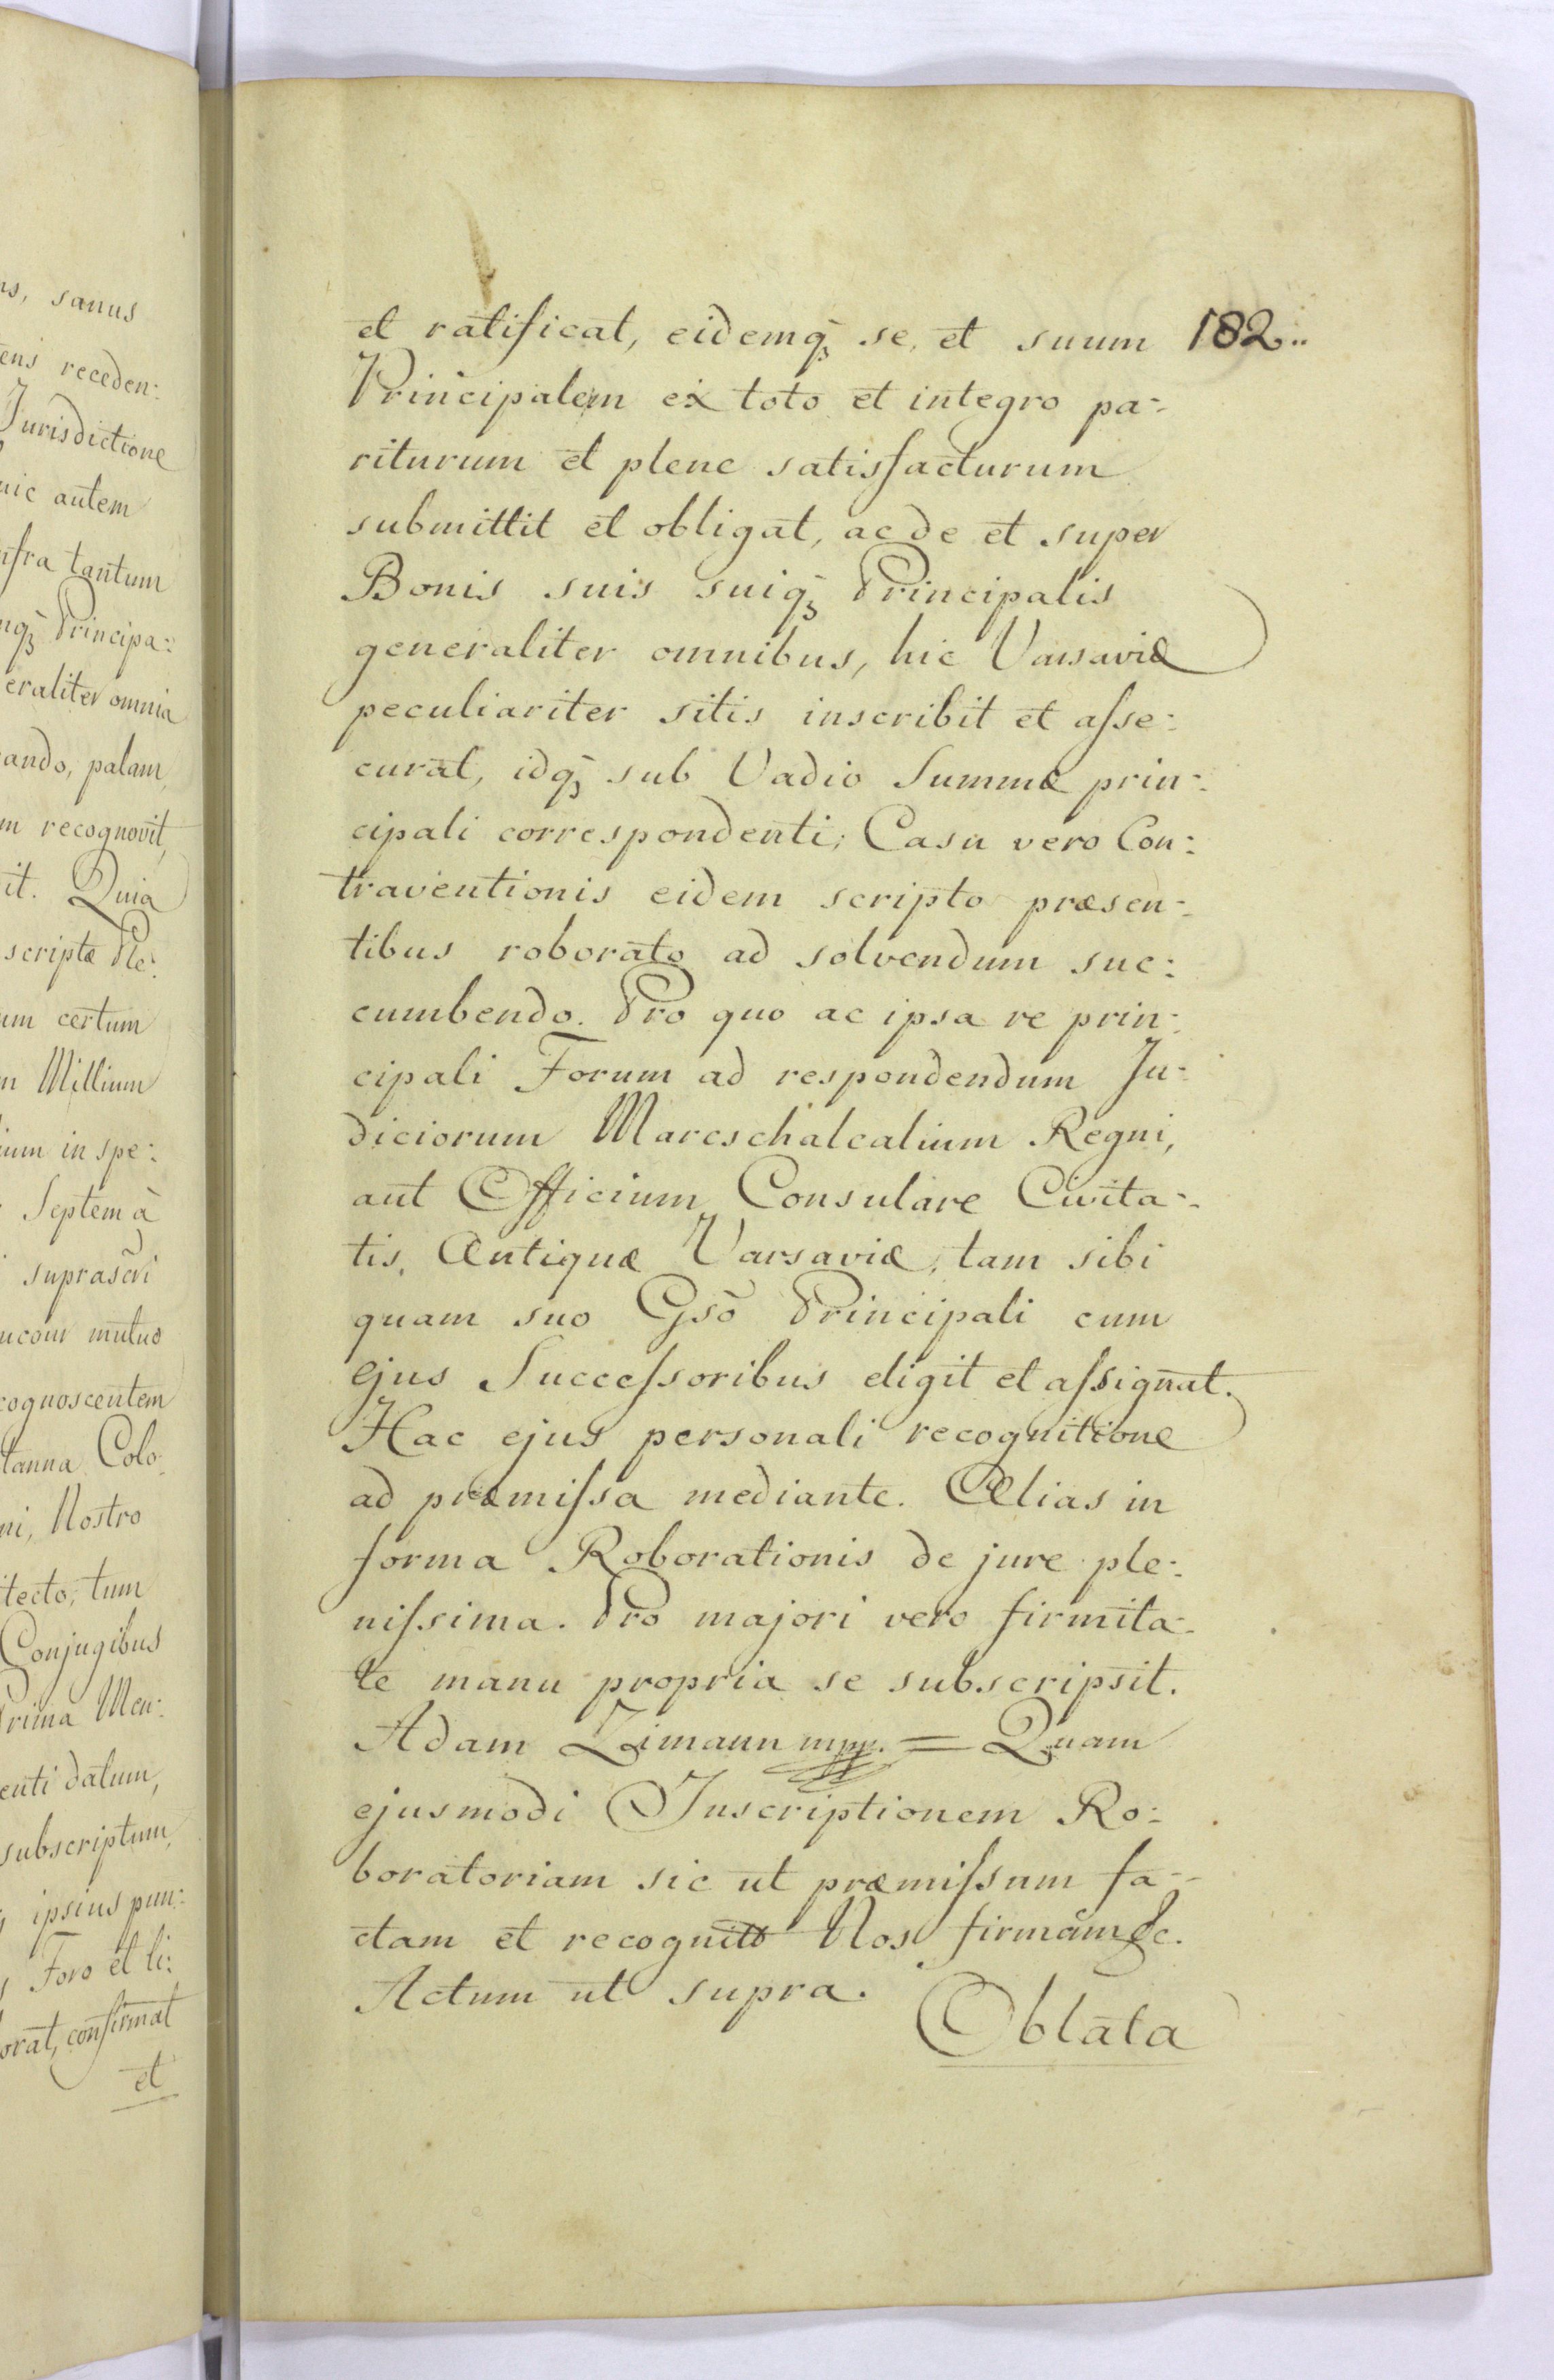 ns, sanus
ens receden:
Jurisdictione
autem
nfra tantum
mq̃ Principa:
eraliter omnia
ando, palam,
m recognovit,
it. Quia
scriptæ Ple:
um certum
m Millium
ium in spe:
Septem à
suprascri
ucour mutuo
cognoscentem
tanna Colo:
ni, Nostro
itecto, tum
Conjugibus
Prima Men:
enti datum,
subscriptum,
ipsius pun:
Foro et li:
orat, confirmat
et
et ratificat, eidemq̃ se, et suum 182..
Principalem ex toto et integro pa-
riturum et plene satisfacturum
submittit et obligat, ac de et super
Bonis suis suiq̃ Principalis
generaliter omnibus, hic Varsaviæ
peculiariter sitis inscribit et aſse:
curat, idq̃ sub Vadio Summæ prin:
cipali correspondenti; Casu vero Con:
traventionis eidem scripto præsen-
tibus roborato ad solvendum suc:
cumbendo. Pro quo ac ipsa re prin:
cipali Forum ad respondendum Ju-
diciorum Mareschalcalium Regni,
aut Officium Consulare Civita-
tis, Antiquæ Varsaviæ, tam sibi
quam suo Gsõ Principali cum
ejus Succeſsoribus eligit et aſsignat.
Hac ejus personali recognitione
ad præmiſsa mediante. Alias in
forma Roborationis de jure ple:
niſsima. Pro majori vero firmita-
te manu propria se subscripsit.
Adam Zimann mpp. = Quam
ejusmodi Inscriptionem Ro:
boratoriam sic ut præmiſsum fa-
ctam et recognit Nos firmam &c.
Actum ut supra.
Oblata